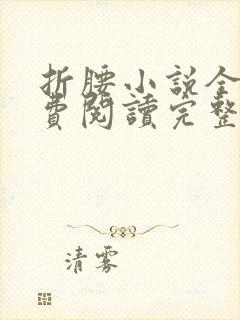 折腰小說全
費閱讀完整
清雾